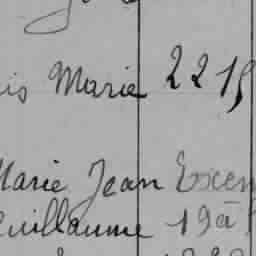 is Marie 2215
Marie Jean Exem
Guillaume 19a